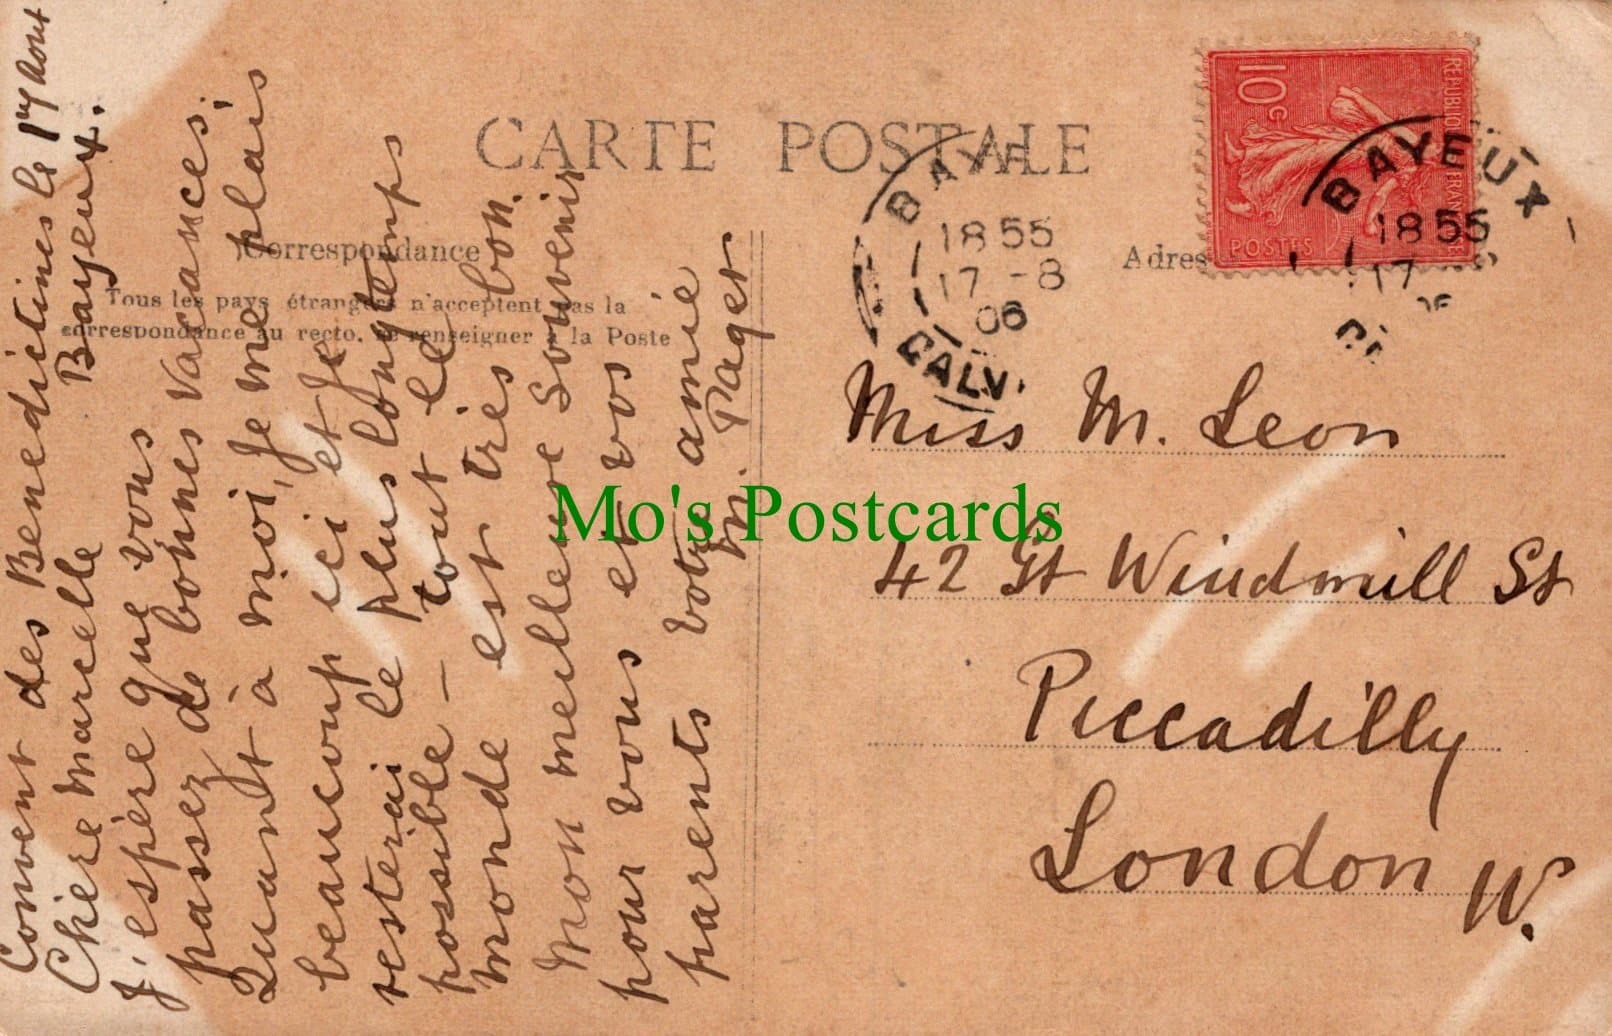 CARTE POSTALE
Correspondance
Tous les pays étrangers n'acceptent pas la
correspondance au recto. se renseigner à la Poste
Convent des Benedictines le 17 Aout
Bayeux.
Chère Marcelle
J'espère que vous
passez de bonnes vacances.
Quant à moi, je me plais
beaucoup ici et je
resterai le plus longtemps
possible – tout le
monde est très bon.
Mon meilleure Souvenir
pour vous et vos
parents votre amie
M. Paget
10c
REPUBLIQUE FRANCAISE
POSTES
BAYEUX
18 55
17 -8
06
CALV
BAYEUX
18 55
17
Miss M. Leon
42 Gt Windmill St
Piccadilly
London W.
Mo's Postcards